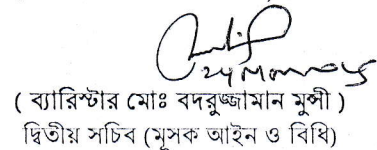 ( ব্যারিস্টার মোঃ বদরুজ্জামান মুন্সী )
দ্বিতীয় সচিব (মূসক আইন ও বিধি)